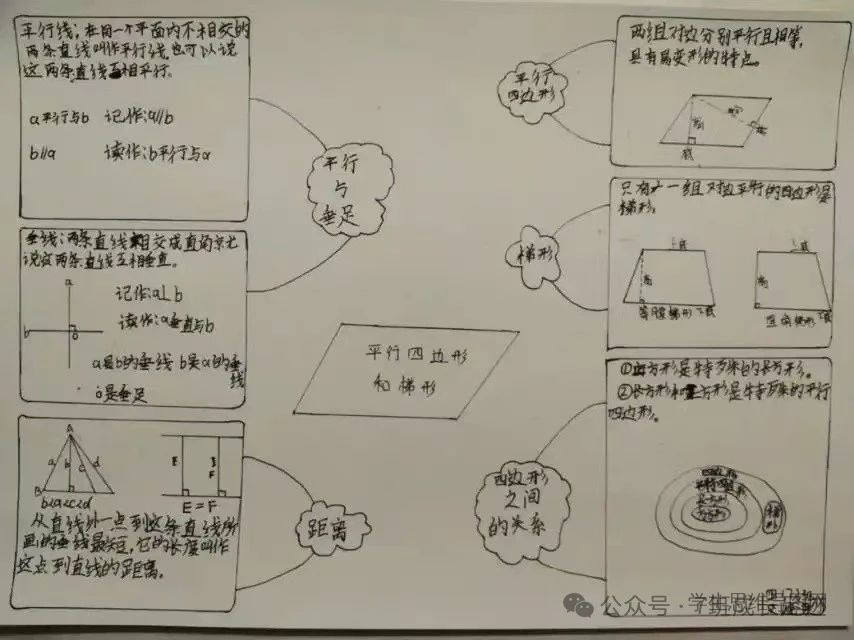 平行线：在同一个平面内不相交的
两条直线叫作平行线，也可以说
这两条直线互相平行。
a平行与b 记作：a//b
b//a 读作：b平行与a
平行
与
垂足
垂线：两条直线相交成直角
说这两条直线互相垂直。
a
b
o
记作：a⊥b
读作：a垂直与b
a是b的垂线 b是a的垂
线
o是垂足
A
a b c d
B
b<a<c<d
E
E
F
E=F
从直线外一点到这条直线所
画的垂线最短，它的长度叫作
这点到直线的距离。
距离
平行四边形
和梯形
平行
四边形
两组对边分别平行且相等，
具有易变形的特点。
高
底
梯形
只有一组对边平行的四边形是
梯形。
上底
高
等腰梯形 下底
上底
高
直角梯形 下底
四边形
之间
的关系
①正方形是特殊的长方形。
②长方形和正方形是特殊的平行
四边形。
四边形
平行四边形
长方形
正方形
梯形
公众号·